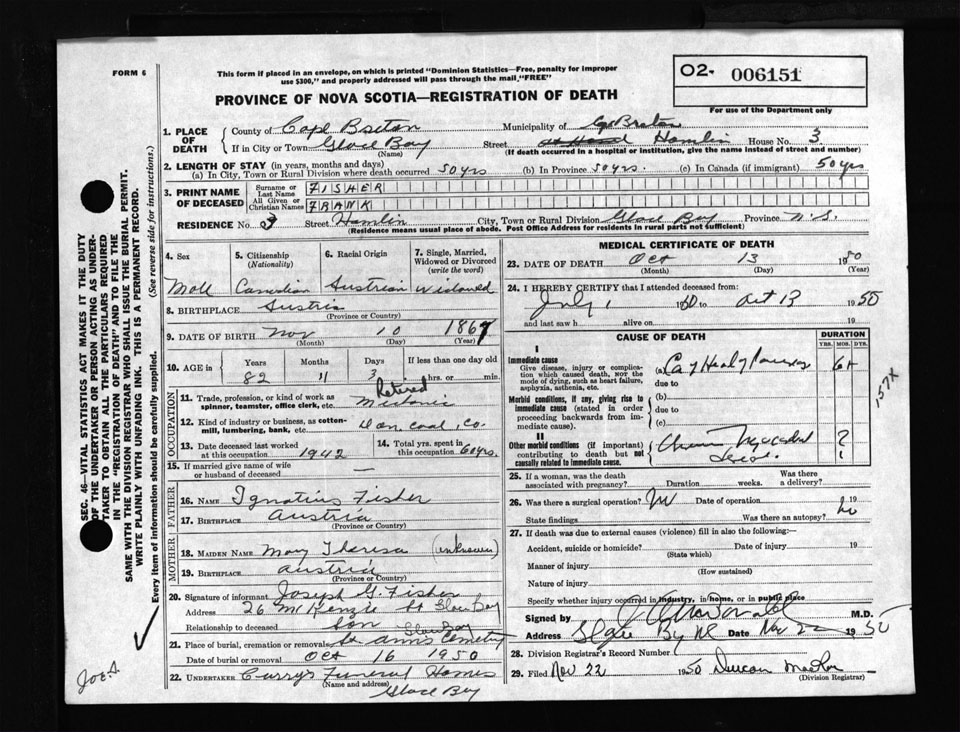 FORM 6
This form if placed in an envelope, on which is printed "Dominion Statistics—Free, penalty for improper
use $300," and properly addressed will pass through the mail "FREE"
O2- 006151
For use of the Department only
PROVINCE OF NOVA SCOTIA—REGISTRATION OF DEATH
1. PLACE OF DEATH
County of Cape Breton Municipality of C. Breton
If in City or Town Glace Bay Street Hamlin House No. 3
(Name) (If death occurred in a hospital or institution, give the name instead of street and number)
2. LENGTH OF STAY (in years, months and days)
(a) In City, Town or Rural Division where death occurred 50 yrs (b) In Province 50 yrs. (c) In Canada (if immigrant) 50 yrs
3. PRINT NAME OF DECEASED
Surname or Last Name FISHER
All Given or Christian Names FRANK
RESIDENCE No. 3 Street Hamlin City, Town or Rural Division Glace Bay Province N.S.
(Residence means usual place of abode. Post Office Address for residents in rural parts not sufficient)
4. Sex 5. Citizenship (Nationality) 6. Racial Origin 7. Single, Married, Widowed or Divorced (write the word)
Male Canadian Austrian Widowed
8. BIRTHPLACE Austria
(Province or Country)
9. DATE OF BIRTH Nov 10 1867
(Month) (Day) (Year)
10. AGE in Years Months Days If less than one day old
82 11 3 hrs. or min.
OCCUPATION
11. Trade, profession, or kind of work as spinner, teamster, office clerk, etc. Retired
12. Kind of industry or business, as cotton-mill, lumbering, bank, etc. Dom. Coal, Co.
13. Date deceased last worked at this occupation 1942
14. Total yrs. spent in this occupation 60 yrs.
15. If married give name of wife or husband of deceased —
FATHER
16. NAME Ignatius Fisher
17. BIRTHPLACE Austria
(Province or Country)
MOTHER
18. MAIDEN NAME Mary Theresa (unknown)
19. BIRTHPLACE Austria
(Province or Country)
20. Signature of informant Joseph G. Fisher
Address 26 McKenzie St Glace Bay
Relationship to deceased Son
21. Place of burial, cremation or removal St Anns Cemetery Glace Bay
Date of burial or removal Oct 16 1950
22. UNDERTAKER Currys Funeral Homes
(Name and address)
Glace Bay
MEDICAL CERTIFICATE OF DEATH
23. DATE OF DEATH Oct 13 1950
(Month) (Day) (Year)
24. I HEREBY CERTIFY that I attended deceased from:
July 1 1950 to Oct 13 1950
and last saw h alive on 19
CAUSE OF DEATH DURATION
YRS. MOS. DYS.
I
Immediate cause
Give disease, injury or complication which caused death, NOR the mode of dying, such as heart failure, asphyxia, asthenia, etc.
(a) Ca of Head of Pancreas
due to
Morbid conditions, if any, giving rise to immediate cause (stated in order proceeding backwards from immediate cause).
(b)
due to
(c)
II
Other morbid conditions (if important) contributing to death but not causally related to immediate cause.
Chronic Myocardial
?
157X
25. If a woman, was the death associated with pregnancy? Duration weeks. Was there a delivery?
26. Was there a surgical operation? Date of operation 19
State findings Was there an autopsy? No
27. If death was due to external causes (violence) fill in also the following:—
Accident, suicide or homicide? Date of injury 19
(State which)
Manner of injury
(How sustained)
Nature of injury
Specify whether injury occurred in industry, in home, or in public place
Signed by M.D.
Address Glace Bay NS Date Nov 22 1950
28. Division Registrar's Record Number
29. Filed Nov 22 1950 Duncan
(Division Registrar)
SEC. 46—VITAL STATISTICS ACT MAKES IT THE DUTY
OF THE UNDERTAKER OR PERSON ACTING AS UNDER-
TAKER TO OBTAIN ALL THE PARTICULARS REQUIRED
IN THE "REGISTRATION OF DEATH" AND TO FILE THE
SAME WITH THE DIVISION REGISTRAR WHO SHALL ISSUE THE BURIAL PERMIT.
WRITE PLAINLY WITH UNFADING INK. THIS IS A PERMANENT RECORD.
Every item of information should be carefully supplied. (See reverse side for instructions.)